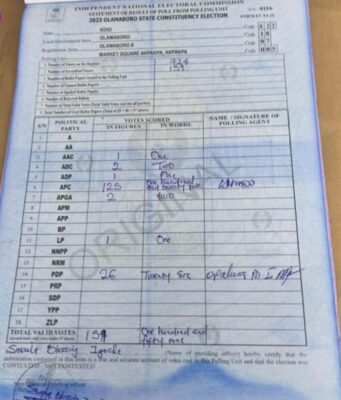 INDEPENDENT NATIONAL ELECTORAL COMMISSION
STATEMENT OF RESULT OF POLL FROM POLLING UNIT
2023 OLAMABORO STATE CONSTITUENCY ELECTION
State KOGI Code
Local Government Area OLAMABORO Code 18
Registration Area OLAMABORO II Code 07
Polling Unit MARKET SQUARE AKPAKPA, AKPAKPA Code 005
1. Number of Voters on the Register
2. Number of Accredited Voters 159
3. Number of Ballot Papers Issued to the Polling Unit
4. Number of Unused Ballot Papers
5. Number of Spoiled Ballot Papers
6. Number of Rejected Ballots
7. Number of Total Valid Votes (Total Valid Votes cast for all parties)
8. Total Number of Used Ballot Papers
S/N POLITICAL PARTY VOTES SCORED IN FIGURES IN WORDS NAME / SIGNATURE OF POLLING AGENT
1 A
2 AA
3 AAC One
4 ADC 2 Two
5 ADP 1 One
6 APC 125 One hundred and twenty five
7 APGA 2 two
8 APM
9 APP
10 BP
11 LP 1 One
12 NNPP
13 NRM
14 PDP 26 Twenty Six
15 PRP
16 SDP
17 YPP
18 ZLP
TOTAL VALID VOTES 159 One hundred and fifty nine
ORIGINAL
(Name of presiding officer) hereby certify that the
information contained in this form is a true and accurate account of votes cast in this Polling Unit and that the election was
CONTESTED / NOT CONTESTED